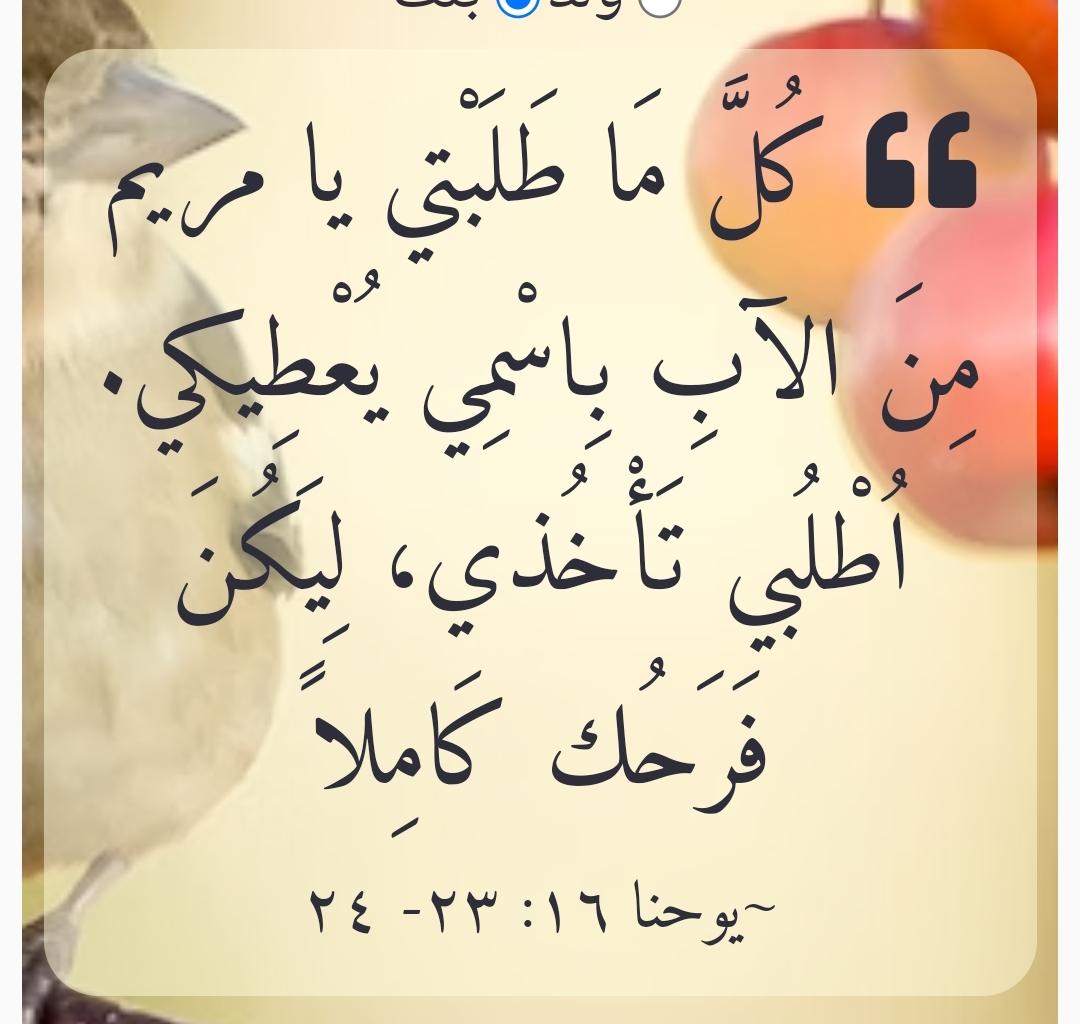 ولد بنت
❝ كُلَّ مَا طَلَبْتي يا مريم
مِنَ الآبِ بِاسْمِي يُعْطِيكي.
اُطْلُبي تَأْخُذي، لِيَكُنَ
فَرَحُك كَامِلاً
~يوحنا ١٦: ٢٣- ٢٤